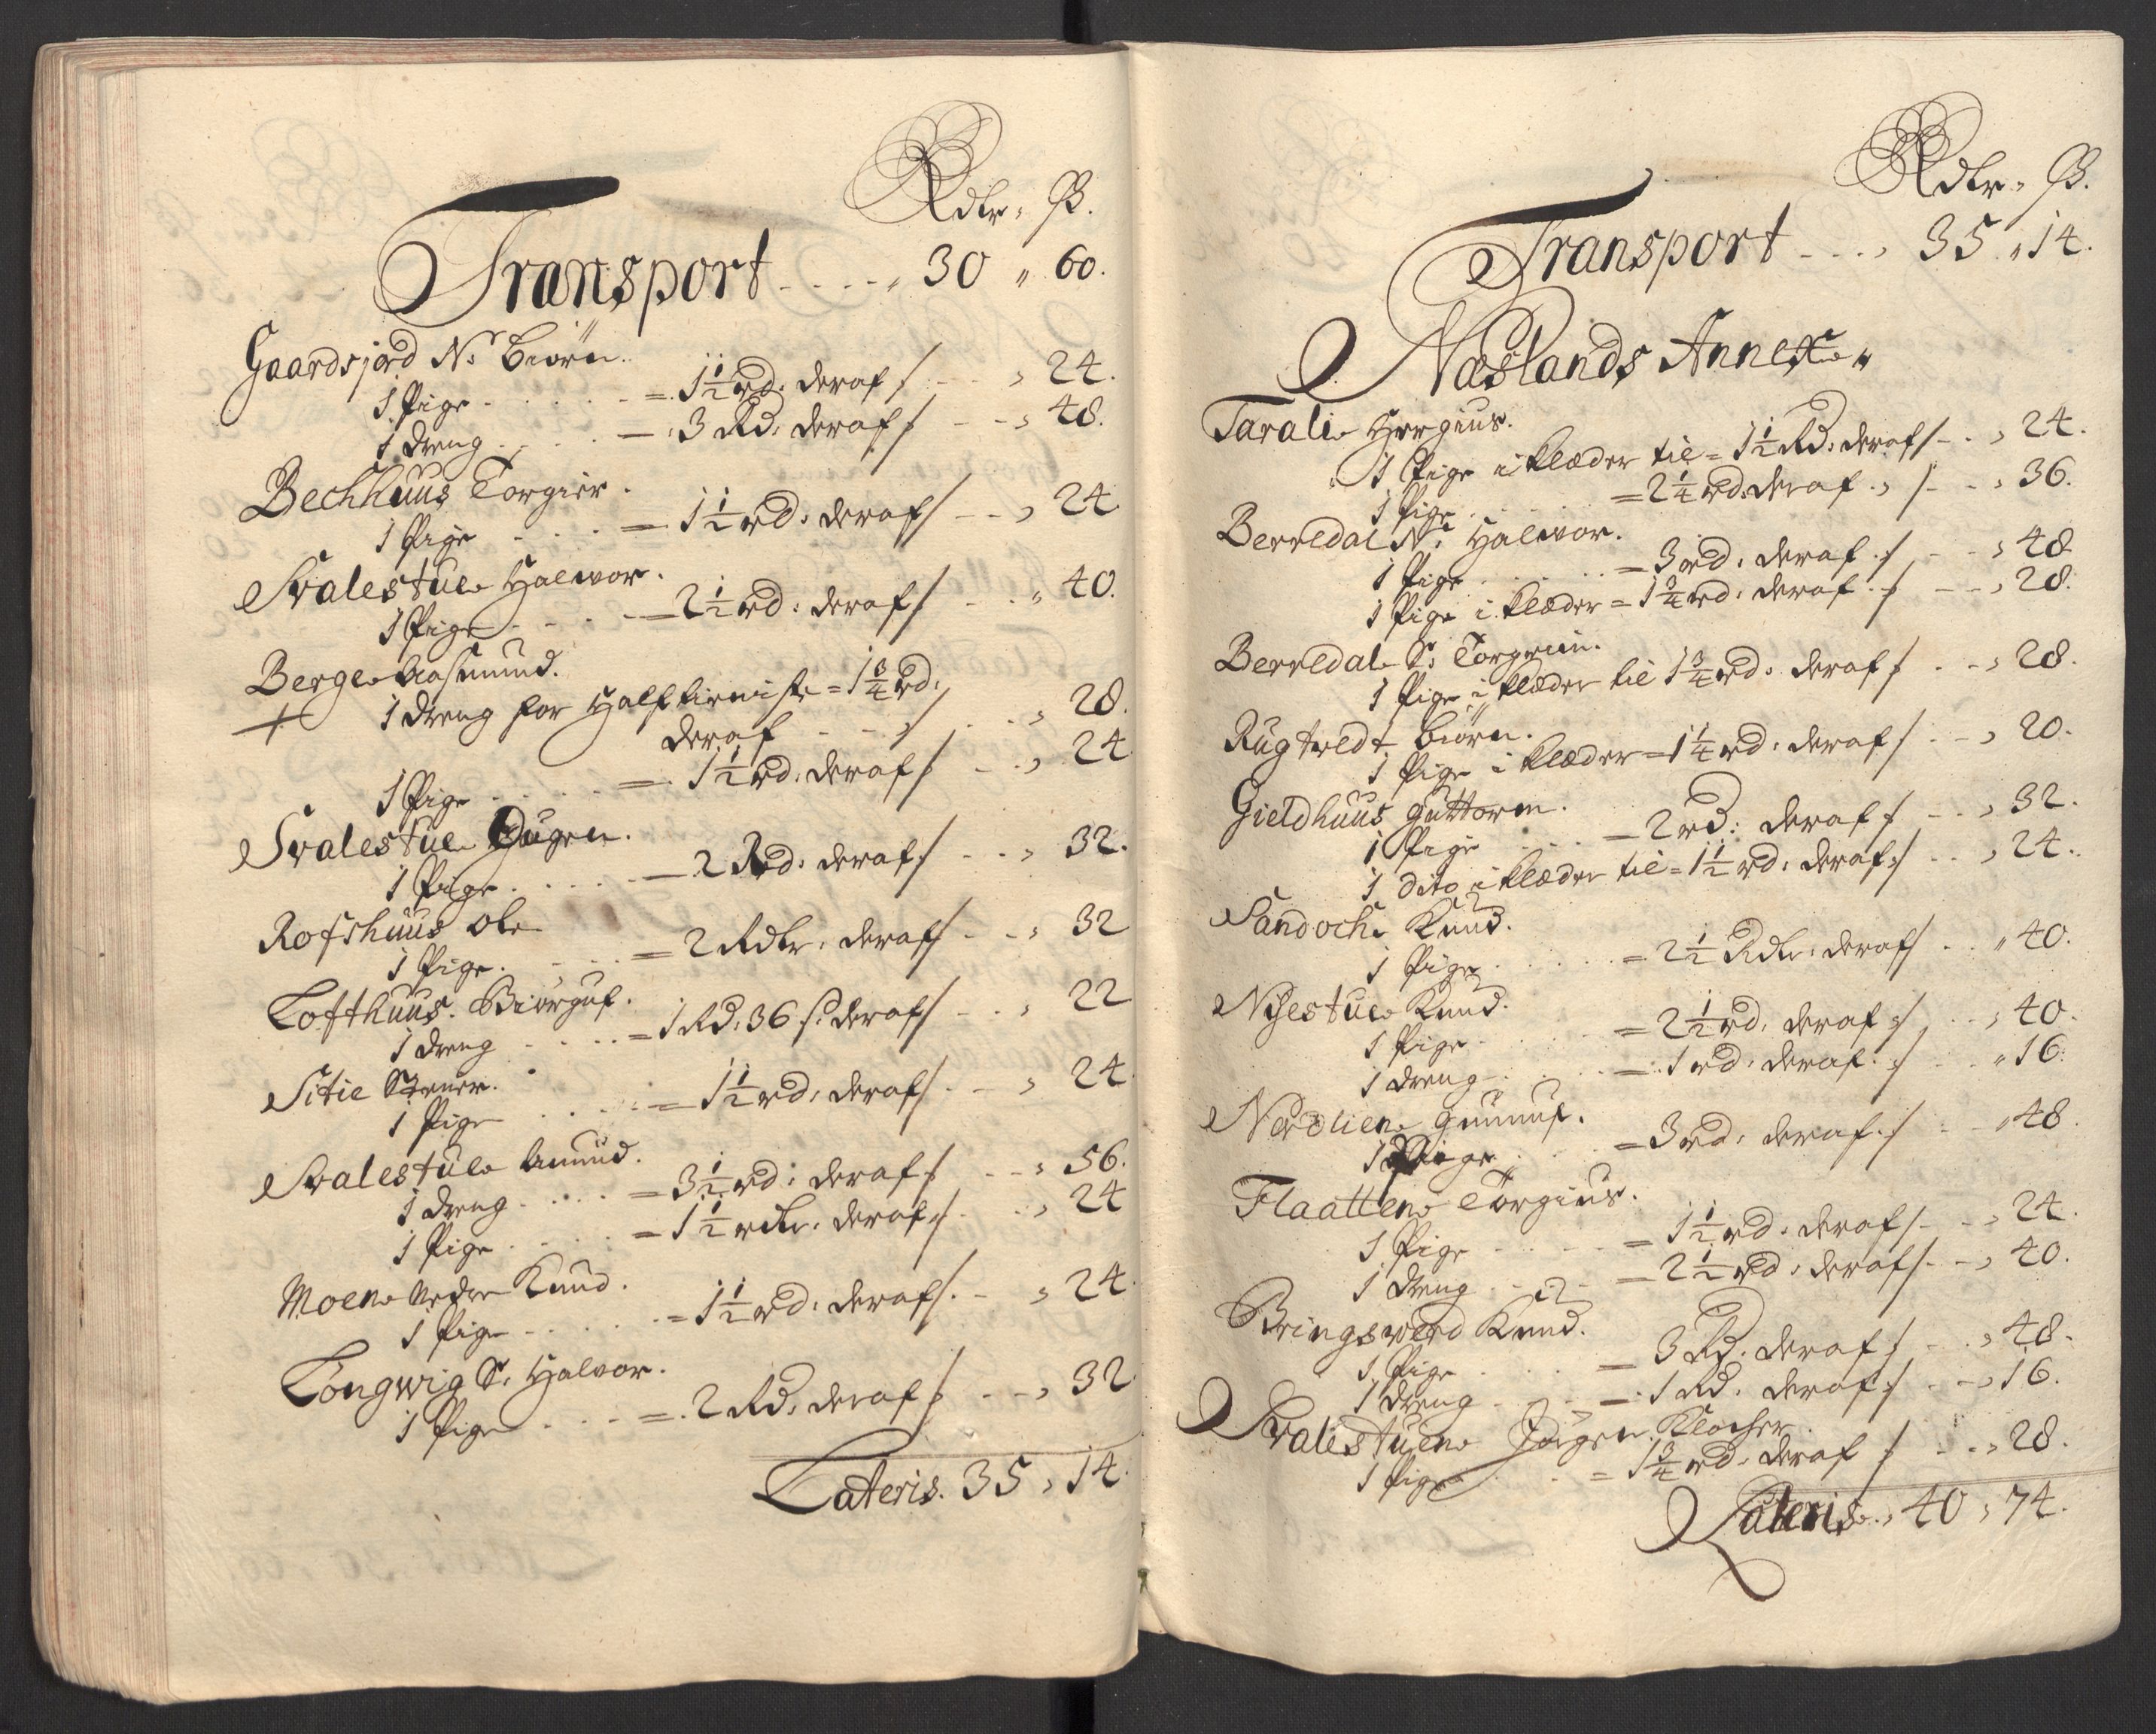 Rdlr. ß.
Transport - - - - „ 30 „ 60.
Gaardsjord N: Biörn.
1 Pige - - - - = 1½ rd: deraf /: - - „ 24.
1 dreng - - - = 3 Rd: deraf /: - - „ 48.
Bechhuus Torgier.
1 Pige - - - = 1½ rd: deraf /: - - „ 24
Svalestue Halvor.
1 Pige - - - = 2½ rd: deraf /: - - „ 40.
Berge Aasmund.
+ 1 dreng for = 1¾ rd:
deraf - - /: - - „ 28.
1 Pige - - - = 1½ rd: deraf /: - - „ 24
Svalestue
1 Pige - - - = 2 Rd: deraf /: - - „ 32.
Rofshuus Ole
1 Pige. - - = 2 Rdlr: deraf /: - - „ 32
Lofthuus. Biörguf.
1 dreng - - - = 1 Rd: 36 s: deraf /: - - „ 22
Sitie
1 Pige - - - = 1½ rd: deraf /: - - „ 24
Svalestue Amund.
1 dreng - - - = 3½ rd: deraf /: - - „ 56.
1 Pige - - - = 1½ rdlr: deraf /: - - „ 24
Moen Nedre Knud.
1 Pige - - - = 1½ rd: deraf /: - - „ 24.
Longwig S: Halvor.
1 Pige - - - = 2 Rd: deraf /: - - „ 32
Lateris. 35 „ 14.
Rdlr. ß.
Transport - - - „ 35 „ 14.
Næslands Annex
Tarali Hergius.
1 Pige i klæder til = 1½ Rd: deraf /: - - „ 24.
1 Pige - - - = 2¼ rd: deraf /: - - „ 36.
Berredal N: Halvor.
1 Pige - - - = 3 rd: deraf /: - - „ 48
1 Pige i klæder = 1¾ rd: deraf /: - - „ 28.
Berredal S: Torgrim.
1 Pige i klæder til 1¾ rd: deraf /: - - „ 28.
Rugtvedt Biörn.
1 Pige i klæder = 1¼ rd: deraf /: - - „ 20.
Gieldhuus Guttorm.
1 Pige - - - = 2 rd: deraf /: - - „ 32.
1 dito i klæder til = 1½ rd: deraf /: - - „ 24.
Sandoch Knud.
1 Pige - - - = 2½ Rdlr: deraf /: - - „ 40.
Nijestue Knud.
1 Pige - - - = 2½ rd: deraf /: - - „ 40.
1 dreng - - - = 1 rd: deraf /: - - „ 16.
Nordlien Gunnuf.
1 Pige - - - = 3 rd: deraf /: - - „ 48
Flaatten Torgius.
1 Pige - - - = 1½ rd: deraf /: - - „ 24.
1 dreng - - - = 2½ rd: deraf /: - - „ 40.
Bringsværd Knud.
1 Pige - - - = 3 Rd: deraf /: - - „ 48.
1 dreng - - - = 1 Rd: deraf /: - - „ 16.
Svalestuen Jörgen Klocher.
1 Pige - - - = 1¾ rd: deraf /: - - „ 28.
Lateris. „ 40 „ 74.